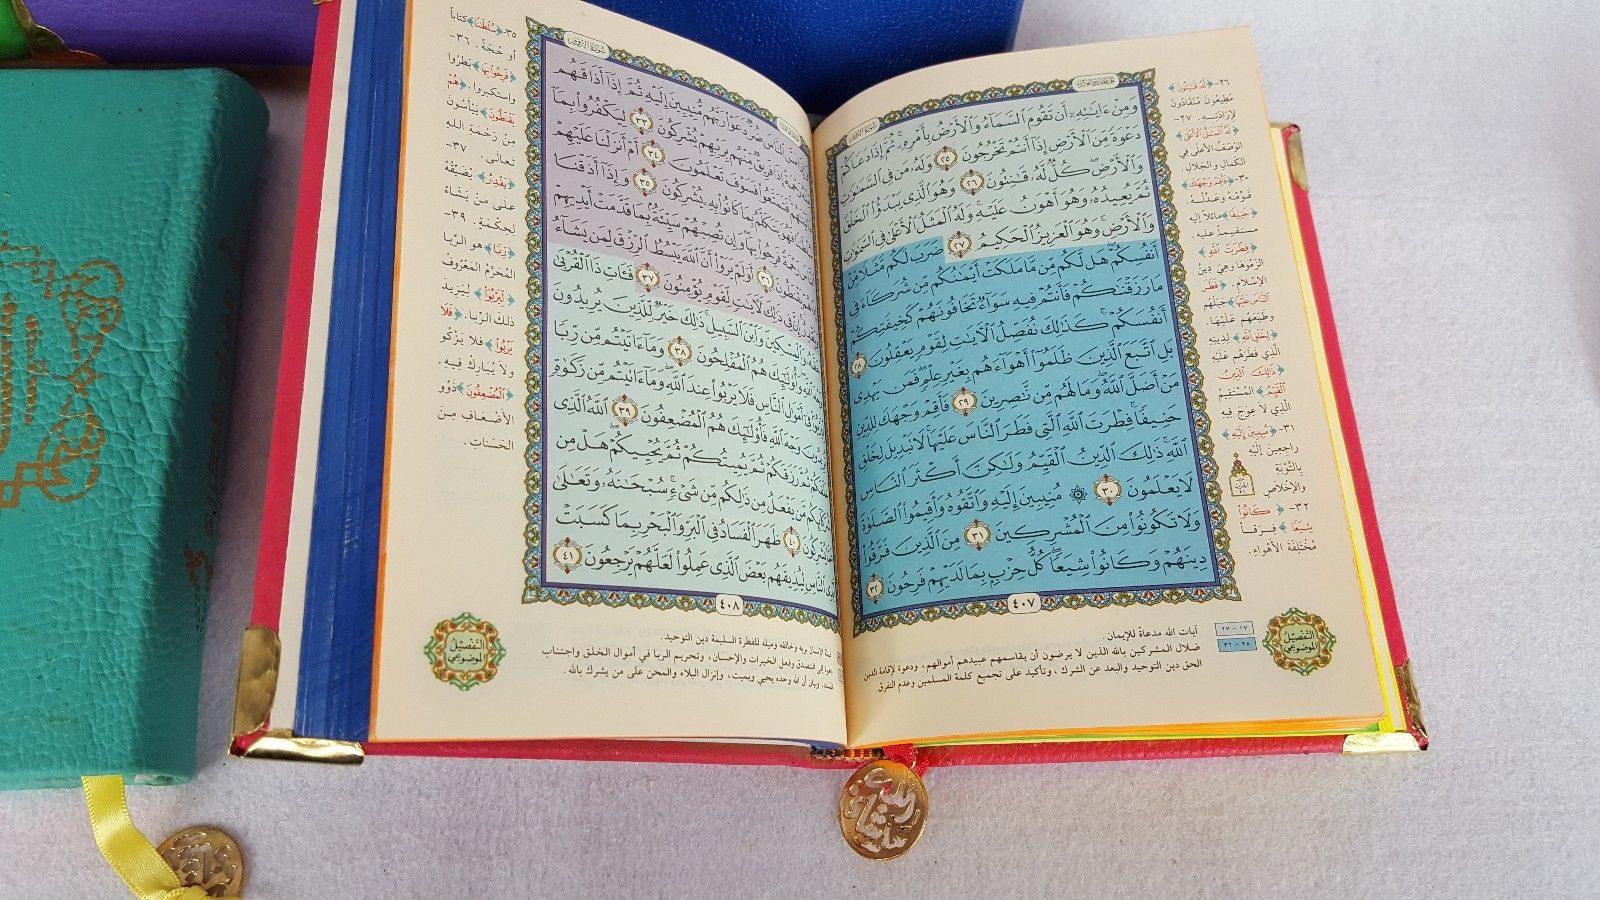 الجزء الحادي والعشرون
سورة الروم
وَمِنْ ءَايَٰتِهِۦٓ أَن تَقُومَ ٱلسَّمَآءُ وَٱلْأَرْضُ بِأَمْرِهِۦ ۚ ثُمَّ إِذَا دَعَاكُمْ
دَعْوَةً مِّنَ ٱلْأَرْضِ إِذَآ أَنتُمْ تَخْرُجُونَ ٢٥ وَلَهُۥ مَن فِى ٱلسَّمَٰوَٰتِ
وَٱلْأَرْضِ ۖ كُلٌّ لَّهُۥ قَٰنِتُونَ ٢٦ وَهُوَ ٱلَّذِى يَبْدَؤُا۟ ٱلْخَلْقَ
ثُمَّ يُعِيدُهُۥ وَهُوَ أَهْوَنُ عَلَيْهِ ۚ وَلَهُ ٱلْمَثَلُ ٱلْأَعْلَىٰ فِى ٱلسَّمَٰوَٰتِ
وَٱلْأَرْضِ ۚ وَهُوَ ٱلْعَزِيزُ ٱلْحَكِيمُ ٢٧ ضَرَبَ لَكُم مَّثَلًا مِّنْ
أَنفُسِكُمْ ۖ هَل لَّكُم مِّن مَّا مَلَكَتْ أَيْمَٰنُكُم مِّن شُرَكَآءَ فِى
مَا رَزَقْنَٰكُمْ فَأَنتُمْ فِيهِ سَوَآءٌ تَخَافُونَهُمْ كَخِيفَتِكُمْ
أَنفُسَكُمْ ۚ كَذَٰلِكَ نُفَصِّلُ ٱلْءَايَٰتِ لِقَوْمٍ يَعْقِلُونَ ٢٨
بَلِ ٱتَّبَعَ ٱلَّذِينَ ظَلَمُوٓا۟ أَهْوَآءَهُم بِغَيْرِ عِلْمٍ ۖ فَمَن يَهْدِى
مَنْ أَضَلَّ ٱللَّهُ ۖ وَمَا لَهُم مِّن نَّٰصِرِينَ ٢٩ فَأَقِمْ وَجْهَكَ لِلدِّينِ
حَنِيفًا ۚ فِطْرَتَ ٱللَّهِ ٱلَّتِى فَطَرَ ٱلنَّاسَ عَلَيْهَا ۚ لَا تَبْدِيلَ لِخَلْقِ
ٱللَّهِ ۚ ذَٰلِكَ ٱلدِّينُ ٱلْقَيِّمُ وَلَٰكِنَّ أَكْثَرَ ٱلنَّاسِ
لَا يَعْلَمُونَ ٣٠ ۞ مُنِيبِينَ إِلَيْهِ وَٱتَّقُوهُ وَأَقِيمُوا۟ ٱلصَّلَوٰةَ
وَلَا تَكُونُوا۟ مِنَ ٱلْمُشْرِكِينَ ٣١ مِنَ ٱلَّذِينَ فَرَّقُوا۟
دِينَهُمْ وَكَانُوا۟ شِيَعًا ۖ كُلُّ حِزْبٍۭ بِمَا لَدَيْهِمْ فَرِحُونَ ٣٢
٤٠٧
٢٦- ﴿لَهُ قَانِتُونَ﴾
مُطِيعُونَ مُنْقَادُونَ
لإِرَادَتِهِ. ٢٧-
﴿لَهُ الْمَثَلُ الْأَعْلَى﴾
الوَصْفُ الأَعْلَى فِي
الكَمَالِ وَالجَلَالِ.
٣٠- ﴿فَأَقِمْ وَجْهَكَ﴾
قَوِّمْهُ وَعَدِّلْهُ.
﴿حَنِيفًا﴾ مَائِلًا إِلَيْهِ
مُسْتَقِيمًا عَلَيْهِ.
﴿فِطْرَتَ اللَّهِ﴾
الْزَمُوهَا وَهِيَ دِينُ
الإِسْلَامِ. ﴿فَطَرَ
النَّاسَ عَلَيْهَا﴾ جَبَلَهُمْ
وَطَبَعَهُمْ عَلَيْهَا.
﴿لِخَلْقِ اللَّهِ﴾ لِدِينِهِ
الَّذِي فَطَرَهُمْ عَلَيْهِ
﴿ذَلِكَ الدِّينُ
الْقَيِّمُ﴾ المُسْتَقِيمُ
الَّذِي لَا عِوَجَ فِيهِ
٣١- ﴿مُنِيبِينَ إِلَيْهِ﴾
رَاجِعِينَ إِلَيْهِ
بِالتَّوْبَةِ
وَالإِخْلَاصِ
٣٢- ﴿كَانُوا
شِيَعًا﴾ فِرَقًا
مُخْتَلِفَةَ الأَهْوَاءِ.
التفصيل الموضوعي
١٧ - ٢٧ آيات الله مدعاة للإيمان.
٢٨ - ٣٢ ضلال المشركين بالله الذين لا يرضون أن يقاسمهم عبيدهم أموالهم، ودعوة لإقامة الدين
الحق دين التوحيد والبعد عن الشرك، وتأكيد على تجميع كلمة المسلمين وعدم التفرق
سورة الروم
ضُرٌّ دَعَوْا۟ رَبَّهُم مُّنِيبِينَ إِلَيْهِ ثُمَّ إِذَآ أَذَاقَهُم
إِذَا فَرِيقٌ مِّنْهُم بِرَبِّهِمْ يُشْرِكُونَ ٣٣ لِيَكْفُرُوا۟ بِمَآ
فَتَمَتَّعُوا۟ فَسَوْفَ تَعْلَمُونَ ٣٤ أَمْ أَنزَلْنَا عَلَيْهِمْ
فَهُوَ يَتَكَلَّمُ بِمَا كَانُوا۟ بِهِۦ يُشْرِكُونَ ٣٥ وَإِذَآ أَذَقْنَا
رَحْمَةً فَرِحُوا۟ بِهَا ۖ وَإِن تُصِبْهُمْ سَيِّئَةٌۢ بِمَا قَدَّمَتْ أَيْدِيهِمْ
يَقْنَطُونَ ٣٦ أَوَلَمْ يَرَوْا۟ أَنَّ ٱللَّهَ يَبْسُطُ ٱلرِّزْقَ لِمَن يَشَآءُ
إِنَّ فِى ذَٰلِكَ لَءَايَٰتٍ لِّقَوْمٍ يُؤْمِنُونَ ٣٧ فَـَٔاتِ ذَا ٱلْقُرْبَىٰ
وَٱلْمِسْكِينَ وَٱبْنَ ٱلسَّبِيلِ ۚ ذَٰلِكَ خَيْرٌ لِّلَّذِينَ يُرِيدُونَ
ٱللَّهِ ۖ وَأُو۟لَٰٓئِكَ هُمُ ٱلْمُفْلِحُونَ ٣٨ وَمَآ ءَاتَيْتُم مِّن رِّبًا
فِىٓ أَمْوَٰلِ ٱلنَّاسِ فَلَا يَرْبُوا۟ عِندَ ٱللَّهِ ۖ وَمَآ ءَاتَيْتُم مِّن زَكَوٰةٍ
وَجْهَ ٱللَّهِ فَأُو۟لَٰٓئِكَ هُمُ ٱلْمُضْعِفُونَ ٣٩ ٱللَّهُ ٱلَّذِى
ثُمَّ رَزَقَكُمْ ثُمَّ يُمِيتُكُمْ ثُمَّ يُحْيِيكُمْ ۖ هَلْ مِن
شُرَكَآئِكُم مَّن يَفْعَلُ مِن ذَٰلِكُم مِّن شَىْءٍ ۚ سُبْحَٰنَهُۥ وَتَعَٰلَىٰ
يُشْرِكُونَ ٤٠ ظَهَرَ ٱلْفَسَادُ فِى ٱلْبَرِّ وَٱلْبَحْرِ بِمَا كَسَبَتْ
أَيْدِى ٱلنَّاسِ لِيُذِيقَهُم بَعْضَ ٱلَّذِى عَمِلُوا۟ لَعَلَّهُمْ يَرْجِعُونَ ٤١
٤٠٨
٣٥- ﴿سُلْطَانًا﴾ كتاباً
أو حُجَّةً. ٣٦-
﴿فَرِحُوا بِهَا﴾ بَطِرُوا
واستكبروا. ﴿هُمْ
يَقْنَطُونَ﴾ يَيْأَسُونَ
مِنْ رَحْمَةِ اللهِ
تَعالَى. ٣٧-
﴿يَقْدِرُ﴾ يُضَيِّقُهُ
عَلَى مَنْ يَشَاءُ
لِحِكْمَةٍ. ٣٩-
﴿رِبًا﴾ هو الرِّبا
المُحَرَّمُ المَعْرُوفُ
﴿لِيَرْبُوَ﴾ لِيَزِيدَ
ذلك الرِّبا. ﴿فَلَا
يَرْبُو﴾ فلا يَزْكُو
ولا يُبَارَكُ فِيهِ.
﴿الْمُضْعِفُونَ﴾ ذَوُو
الأَضْعَافِ مِنَ
الحَسَنَاتِ.
التفصيل الموضوعي
الإنسان بربه وخالقه وميله للفطرة السليمة دين التوحيد.
إلى التصدق وفعل الخيرات والإحسان، وتحريم الربا في أموال الخلق واجتناب
وبيان أن الله وحده يحيي ويميت، وإنزال البلاء والمحن على من يشرك بالله.